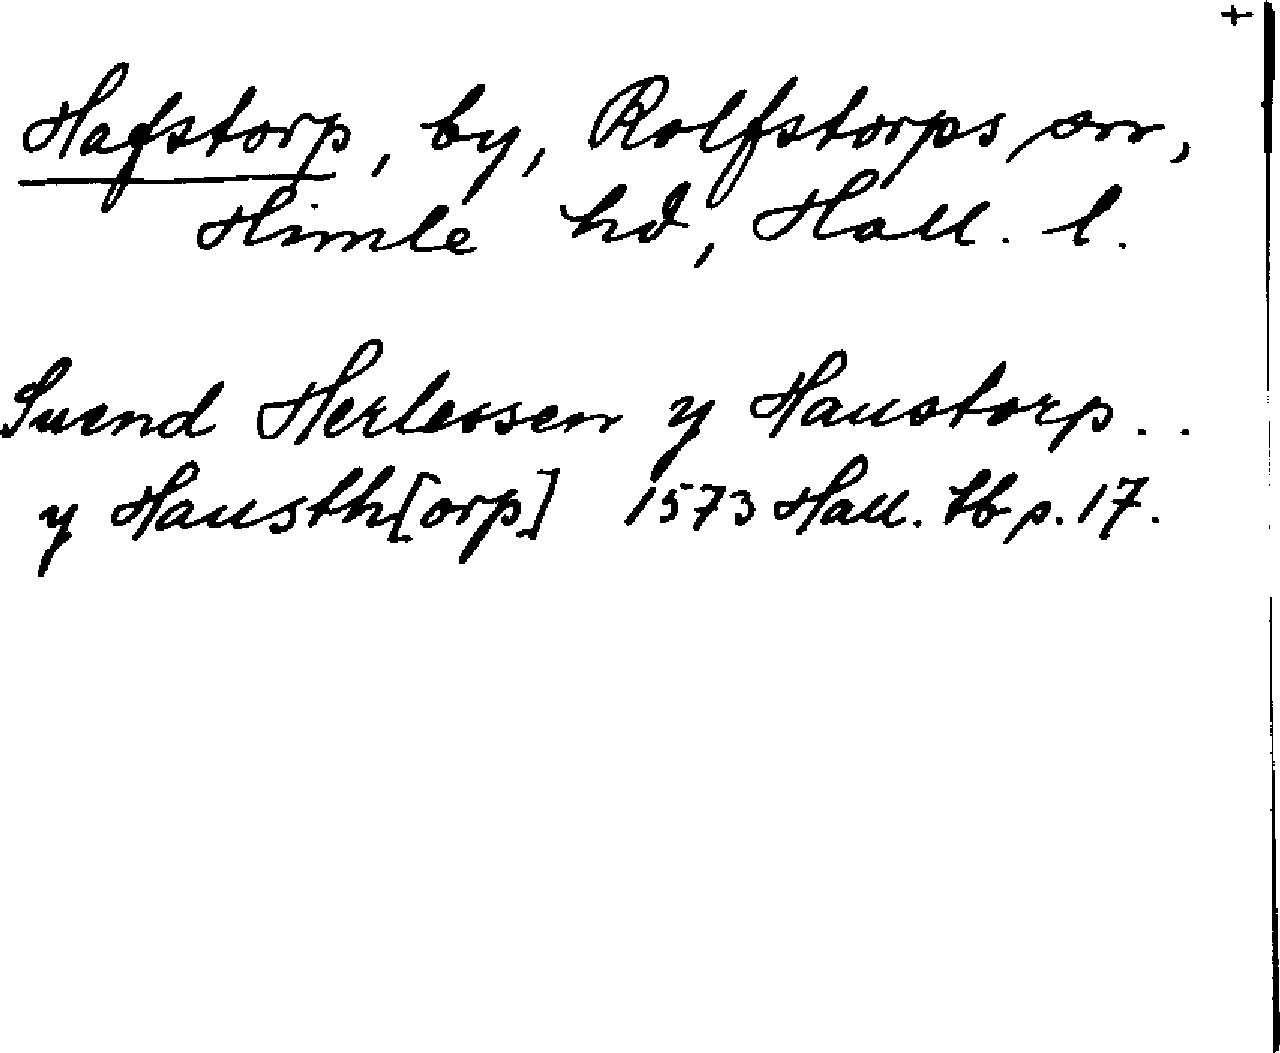 +
Hafstorp, by, Rolfstorps sn,
Himle hd, Hall. l.
Suend Herlessen y Haustorp..
y Hausth[orp] 1573 Hall. tb p. 17.